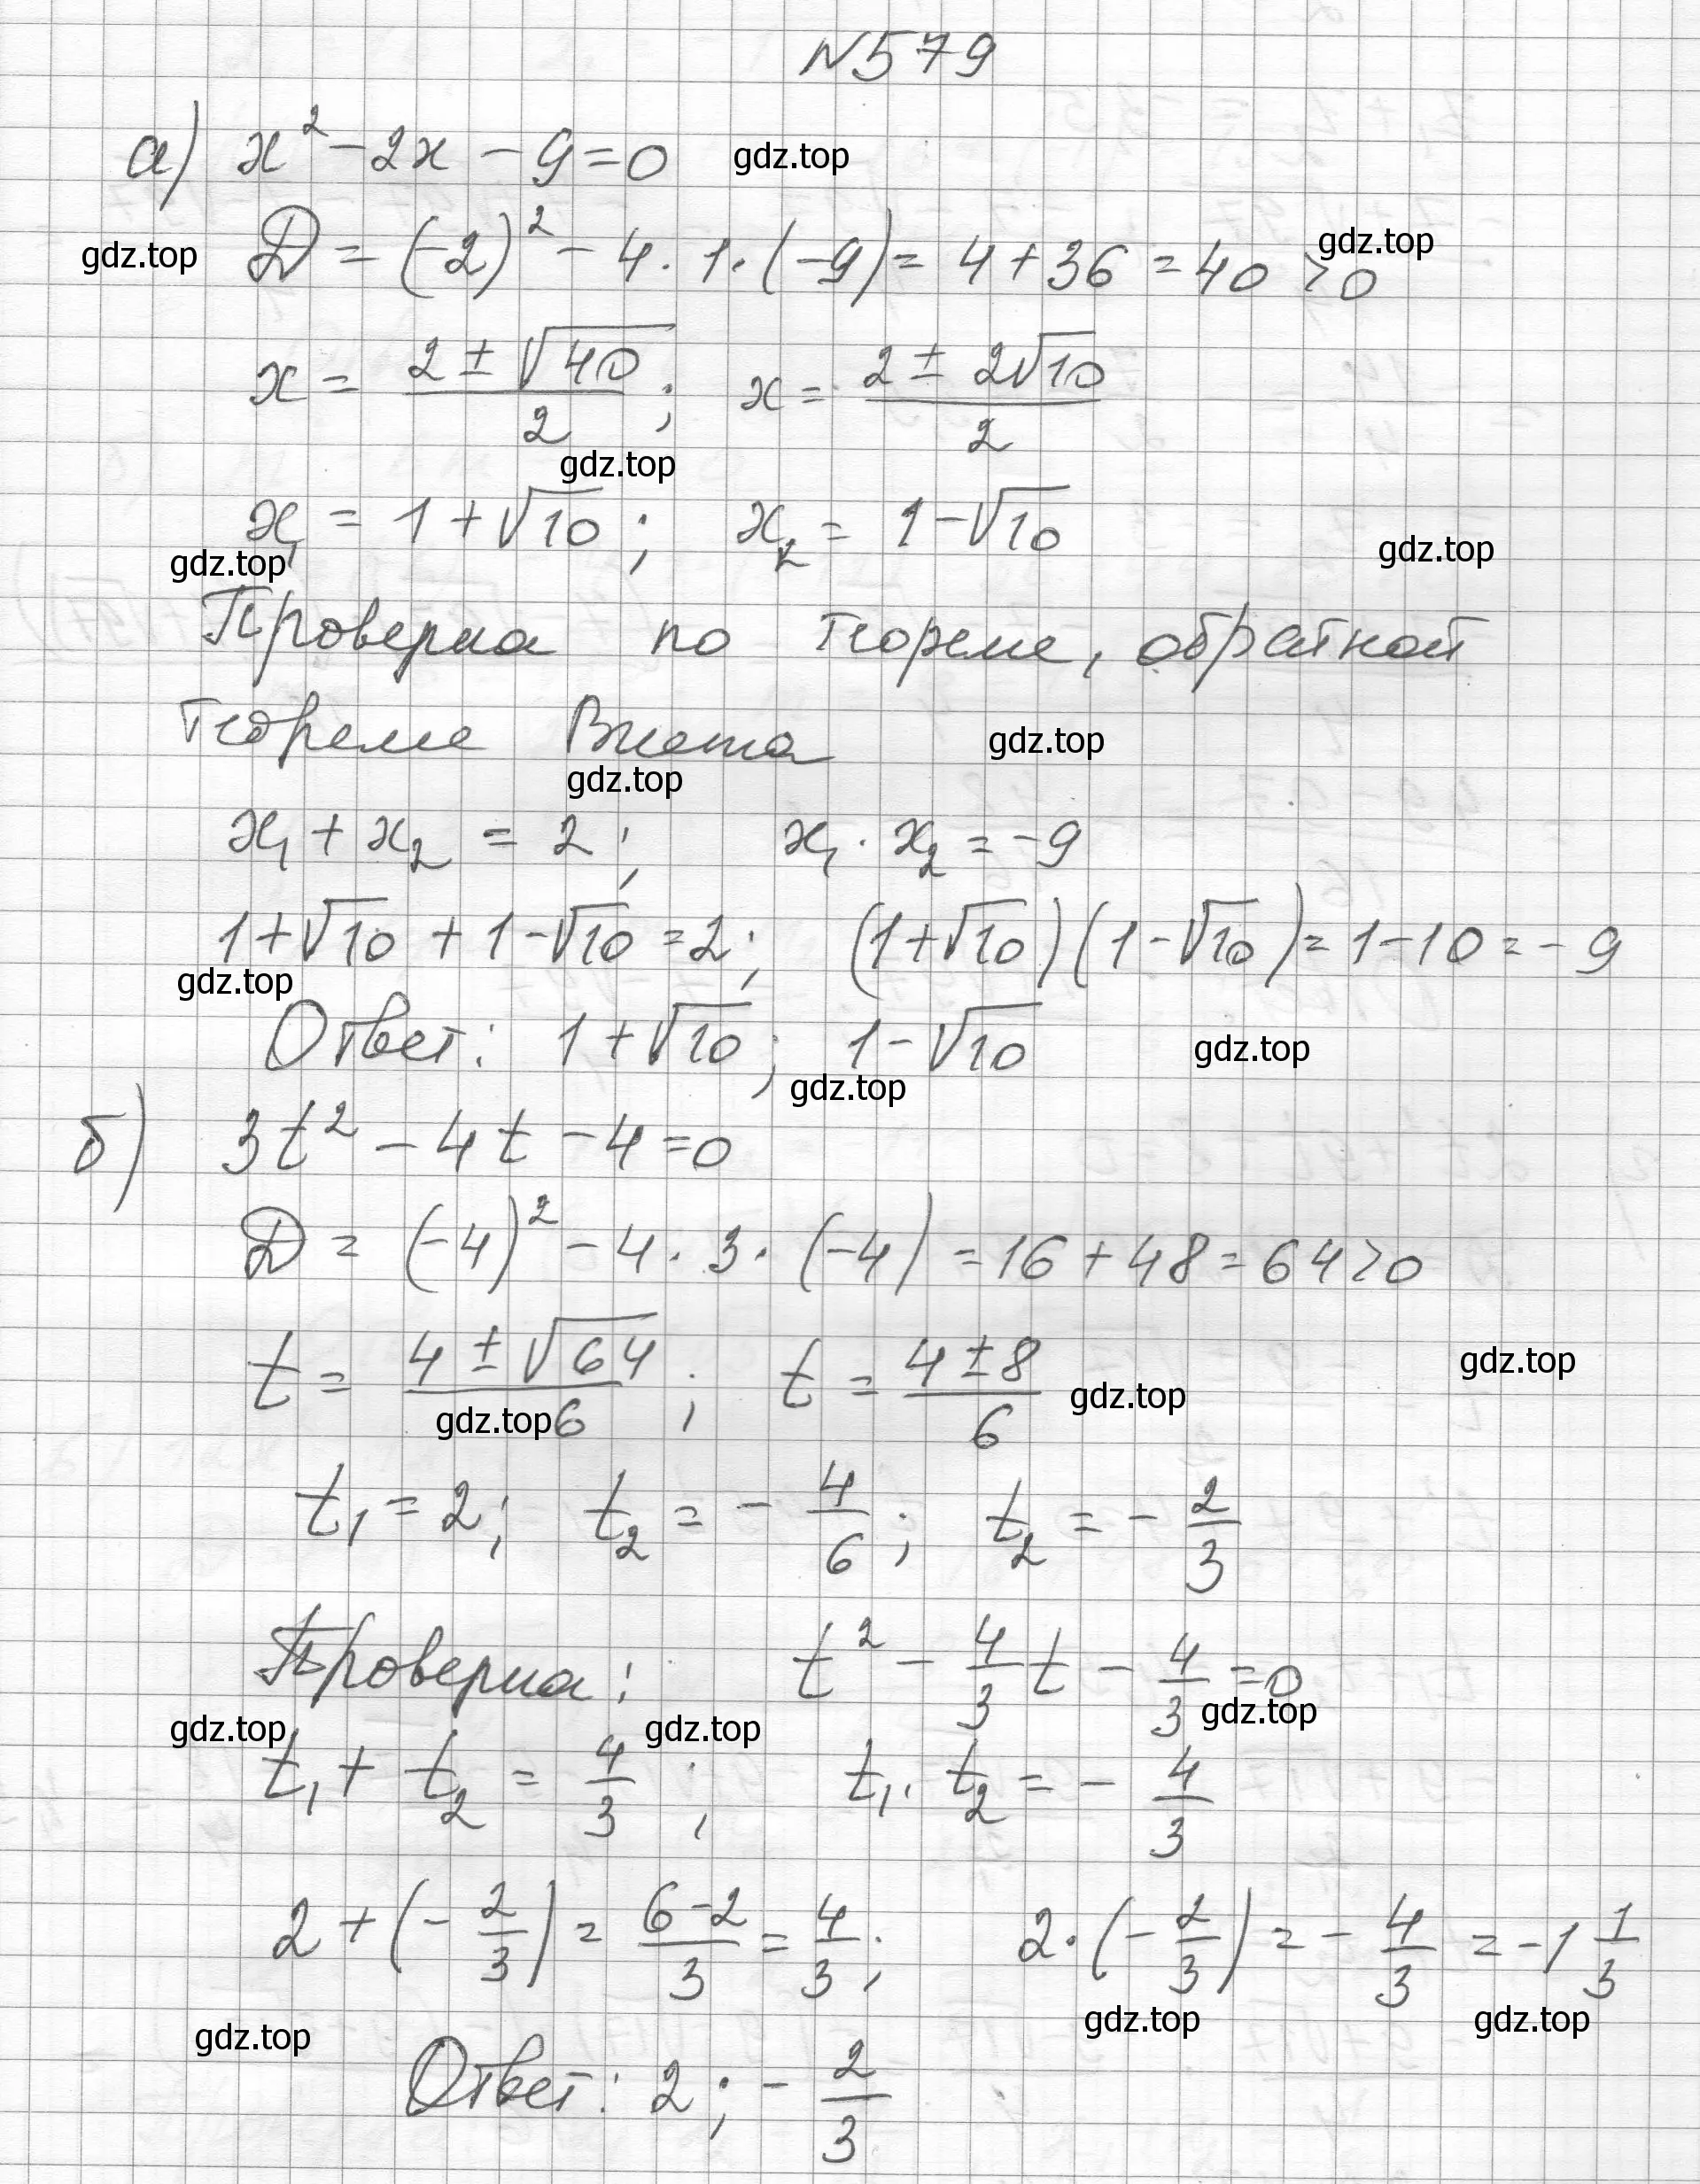 N579
а) x² - 2x - 9 = 0 gdz.top
gdz.top D = (-2)² - 4 · 1 · (-9) = 4 + 36 = 40 > 0 gdz.top
x = (2 ± √40)/2 ; x = (2 ± 2√10)/2
gdz.top
x₁ = 1 + √10 ; x₂ = 1 - √10
gdz.top gdz.top
Проверка по теореме, обратной
теореме Виета gdz.top
gdz.top
x₁ + x₂ = 2 ; x₁ · x₂ = -9
1 + √10 + 1 - √10 = 2 ; (1 + √10)(1 - √10) = 1 - 10 = -9
gdz.top
Ответ: 1 + √10 ; 1 - √10 gdz.top
gdz.top
б) 3t² - 4t - 4 = 0
D = (-4)² - 4 · 3 · (-4) = 16 + 48 = 64 > 0
t = (4 ± √64)/6 ; t = (4 ± 8)/6 gdz.top
gdz.top gdz.top
t₁ = 2 ; t₂ = -4/6 ; t₂ = -2/3
Проверка: t² - 4/3 t - 4/3 = 0
gdz.top gdz.top gdz.top
t₁ + t₂ = 4/3 ; t₁ · t₂ = -4/3
2 + (-2/3) = (6-2)/3 = 4/3 ; 2 · (-2/3) = -4/3 = -1 1/3
gdz.top gdz.top gdz.top
Ответ: 2 ; -2/3